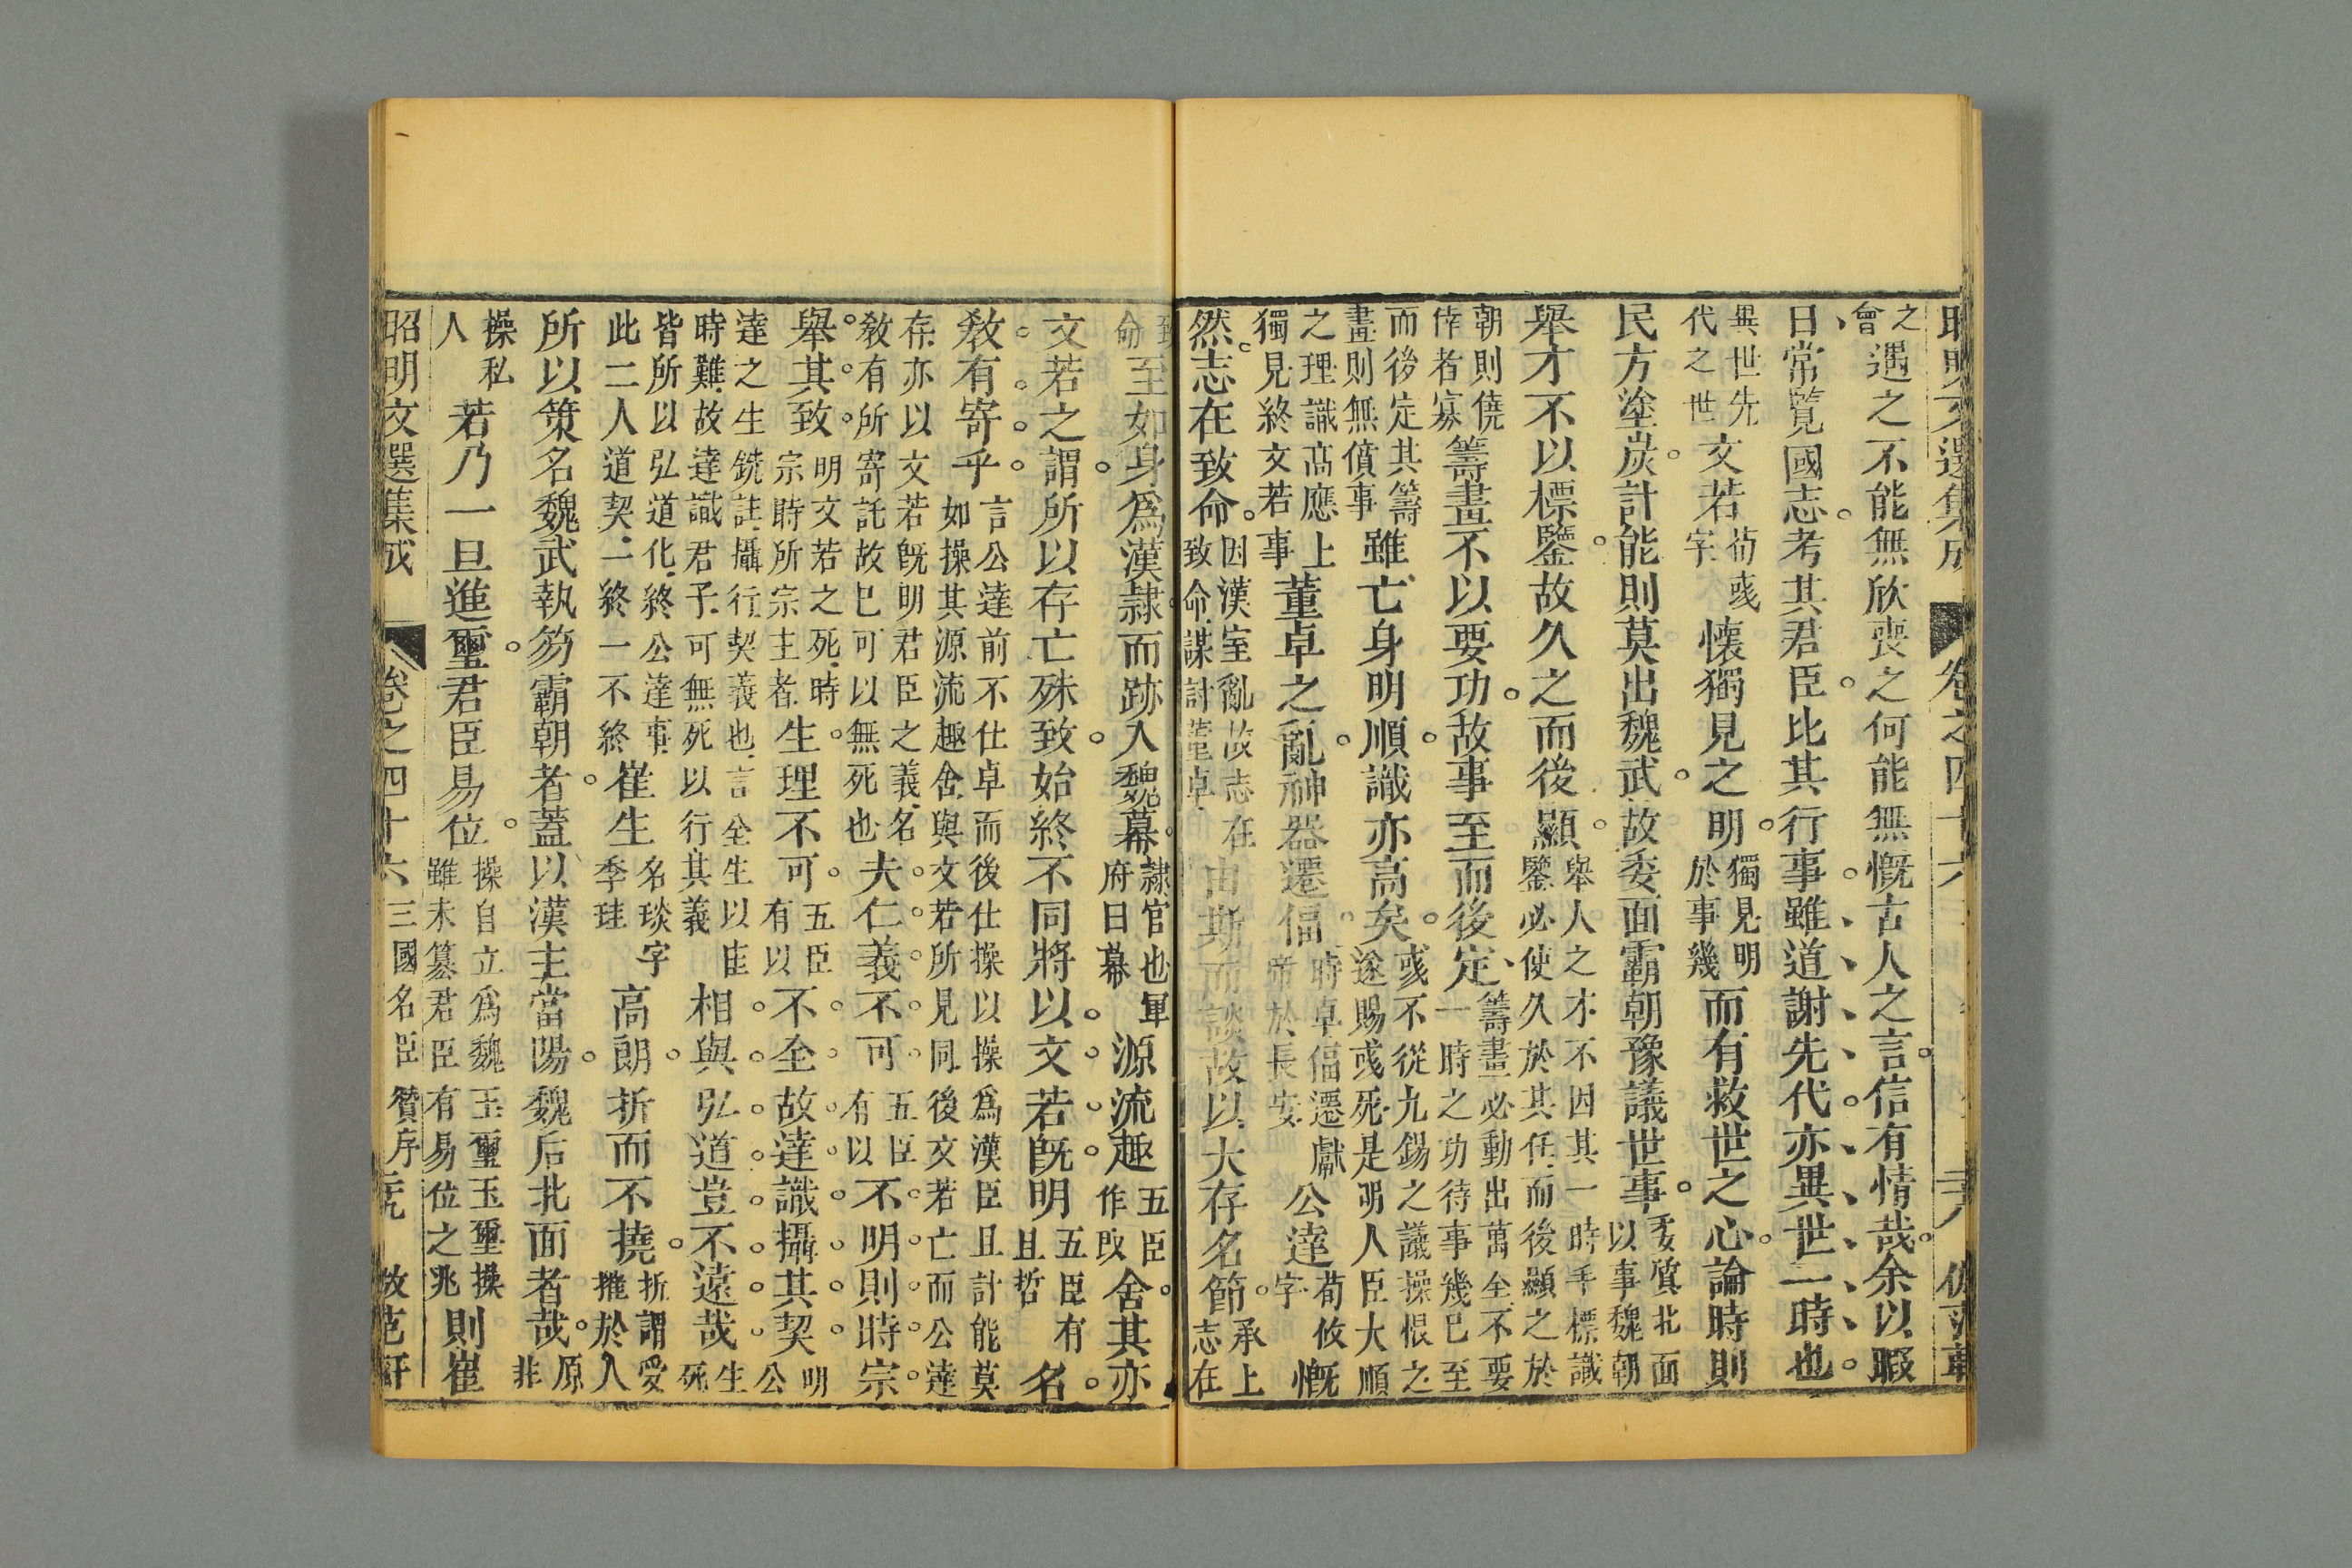 昭明文選集成 卷之四十六 三八 倣范軒
之會遇之不能無欣喪之何能無慨古人之言信有情哉余以暇
日常覽國志考其君臣比其行事雖道謝先代亦異世一時也
異世先代之世文若荀彧字懷獨見之明獨見明於事幾而有救世之心論時則
民方塗炭計能則莫出魏武故委面霸朝豫議世事委質北面以事魏朝
舉才不以標鑒故久之而後顯舉人之才不因其一時手標識鑒必使久於其任而後顯之於
朝則僥倖者寡籌畫不以要功故事至而後定籌畫必動出萬全不要一時之功待事幾已至
而後定其籌畫則無僨事雖亡身明順識亦高矣彧不從九錫之議操恨之遂賜彧死是明人臣大順
之理識高應上獨見終文若事董卓之亂神器遷偪時卓偪遷獻帝於長安公達荀攸字慨
然志在致命因漢室亂故志在致命謀討董卓由斯而談故以大存名節承上志在
致命至如身爲漢隷而跡入魏幕隷官也軍府曰幕源流趣五臣作取舍其亦
文若之謂所以存亡殊致始終不同將以文若旣明五臣有且哲名
教有寄乎言公達前不仕卓而後仕操以操爲漢臣且計能莫如操其源流趣舍與文若所見同後文若亡而公達
存亦以文若旣明君臣之義名敎有所寄託故已可以無死也夫仁義不可五臣有以不明則時宗
舉其致明文若之死時宗時所宗主者生理不可五臣有以不全故達識攝其契明公
達之生銑註攝行契義也言全生以時難故達識君子可無死以行其義相與弘道豈不遠哉生死
皆所以弘道化終公達事此二人道契二終一不終崔生名琰字季珪高朗折而不撓折謂受摧於人
所以策名魏武執笏霸朝者蓋以漢主當陽魏后北面者哉原非
操私人若乃一旦進璽君臣易位操自立爲魏王璽玉璽操雖未篡君臣有易位之兆則崔
昭明文選集成 卷之四十六 三國名臣贊序 元 倣范軒